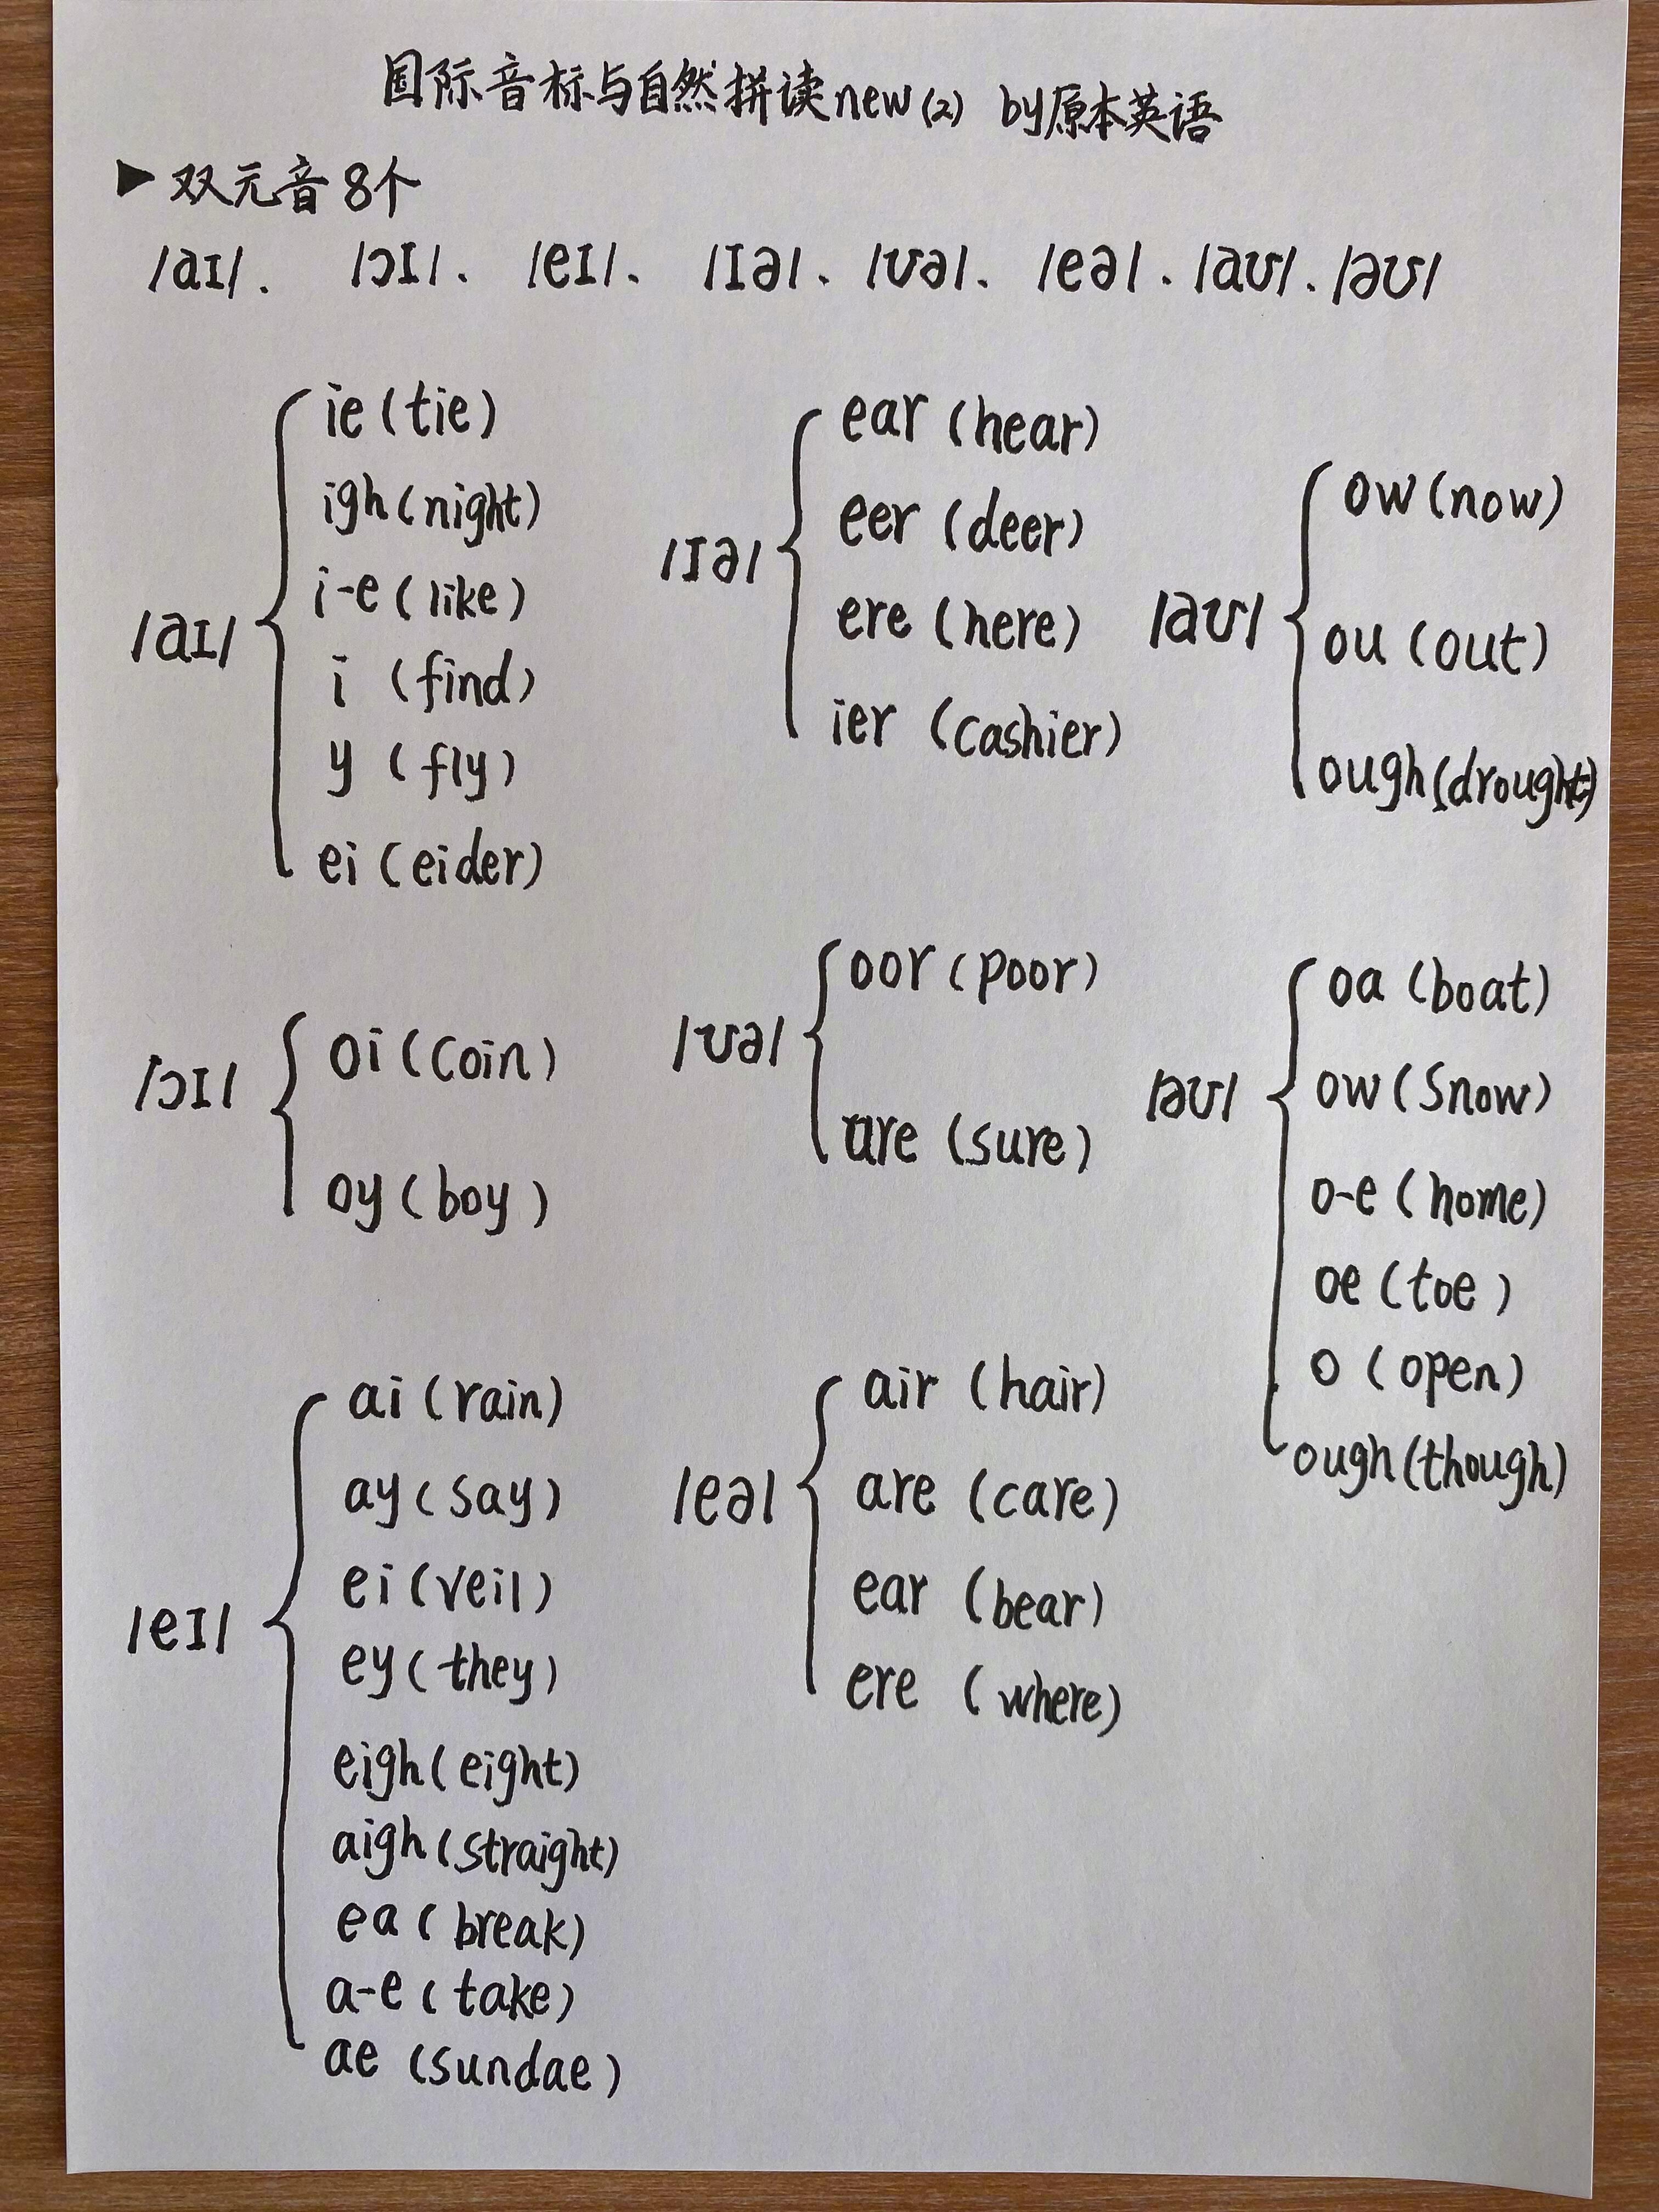 国际音标与自然拼读new(2) by原本英语
▶双元音8个
/aɪ/. /ɔɪ/、/eɪ/、/ɪə/、/ʊə/、/eə/、/aʊ/、/əʊ/
/aɪ/
ie (tie)
igh (night)
i-e (like)
i (find)
y (fly)
ei (eider)
/ɔɪ/
oi (coin)
oy (boy)
/eɪ/
ai (rain)
ay (say)
ei (veil)
ey (they)
eigh (eight)
aigh (straight)
ea (break)
a-e (take)
ae (sundae)
/ɪə/
ear (hear)
eer (deer)
ere (here)
ier (cashier)
/ʊə/
oor (poor)
ure (sure)
/eə/
air (hair)
are (care)
ear (bear)
ere (where)
/aʊ/
ow (now)
ou (out)
ough (drought)
/əʊ/
oa (boat)
ow (snow)
o-e (home)
oe (toe)
o (open)
ough (though)